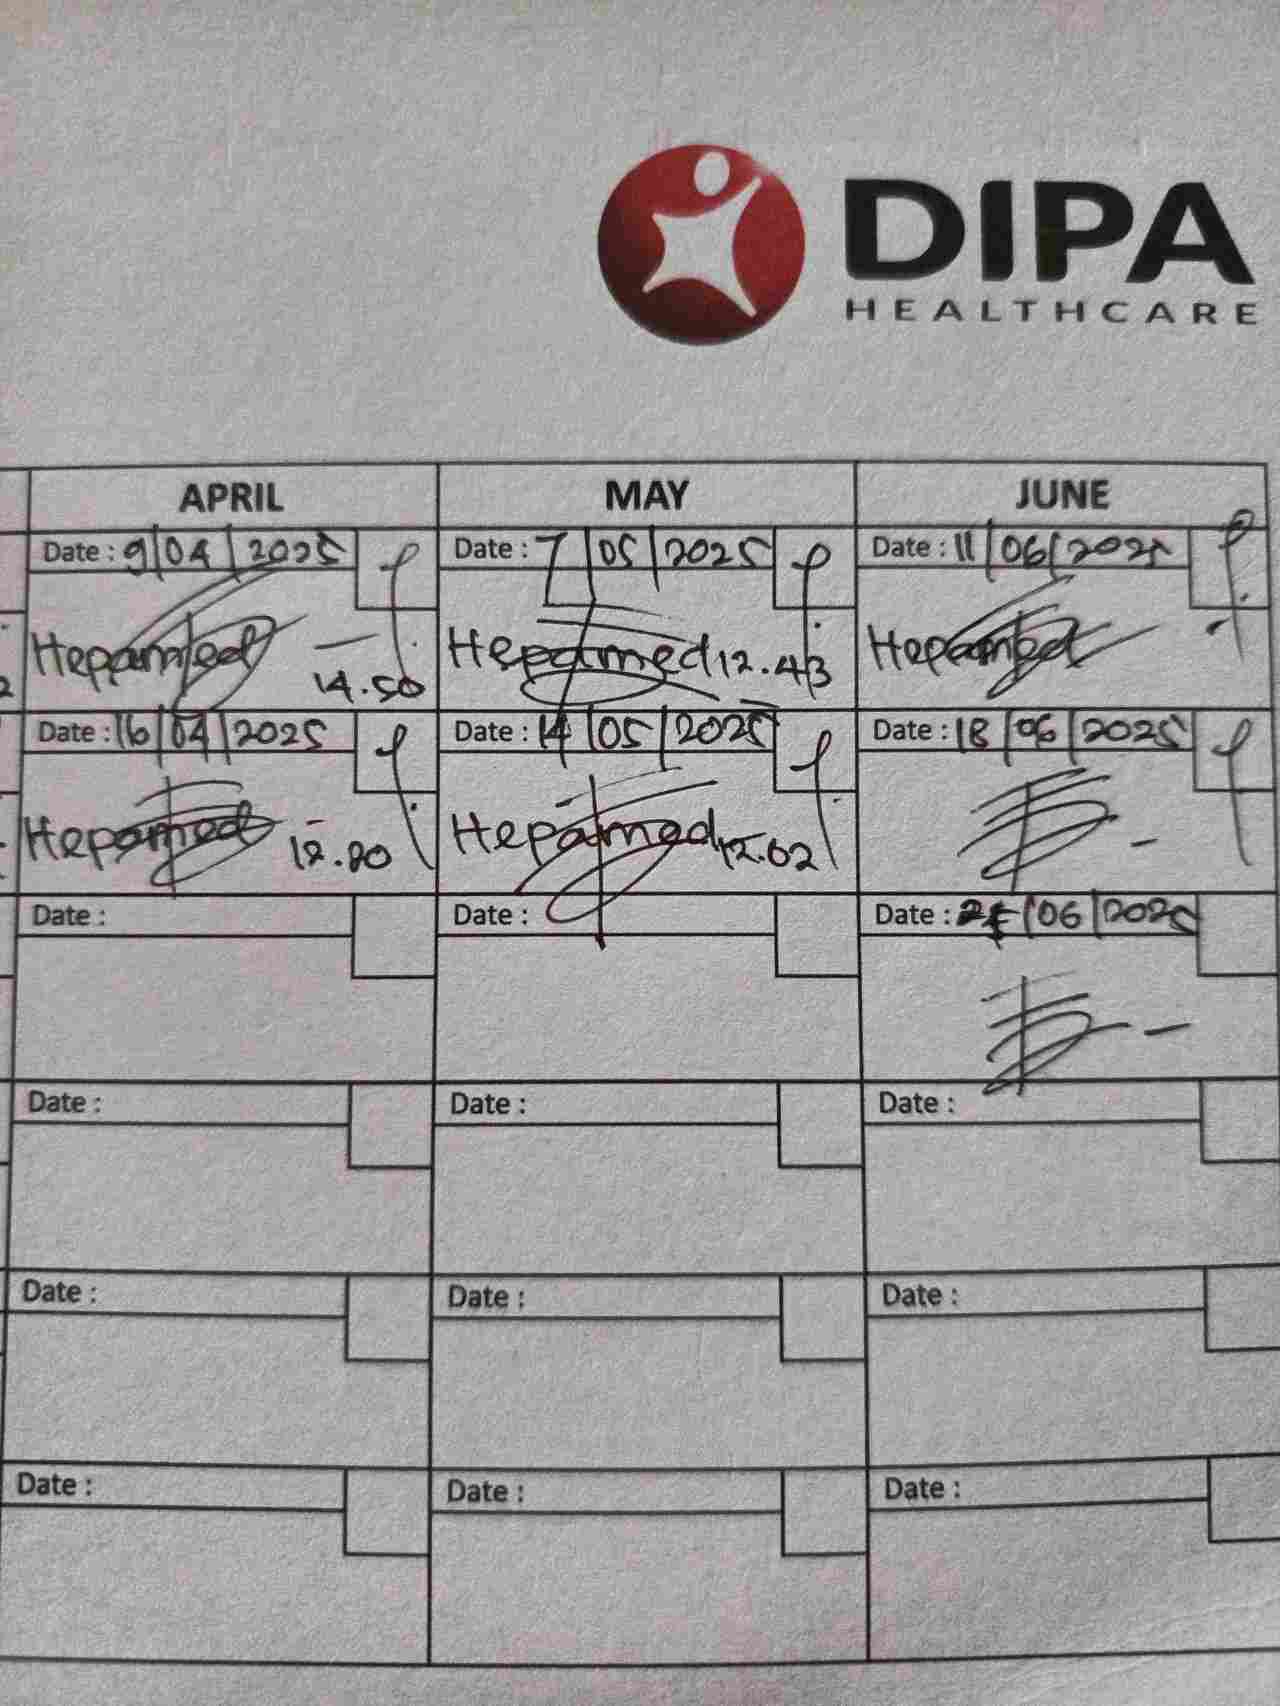 DIPA
HEALTHCARE
APRIL MAY JUNE
Date : 9/04/2025 Date : 7/05/2025 Date : 11/06/2025
Hepamed Hepamed 12.43 Hepamed
14.50
Date : 16/04/2025 Date : 14/05/2025 Date : 18/06/2025
Hepamed Hepamed 12.02
12.20
Date : Date : Date : /06/2025
Date : Date : Date :
Date : Date : Date :
Date : Date : Date :